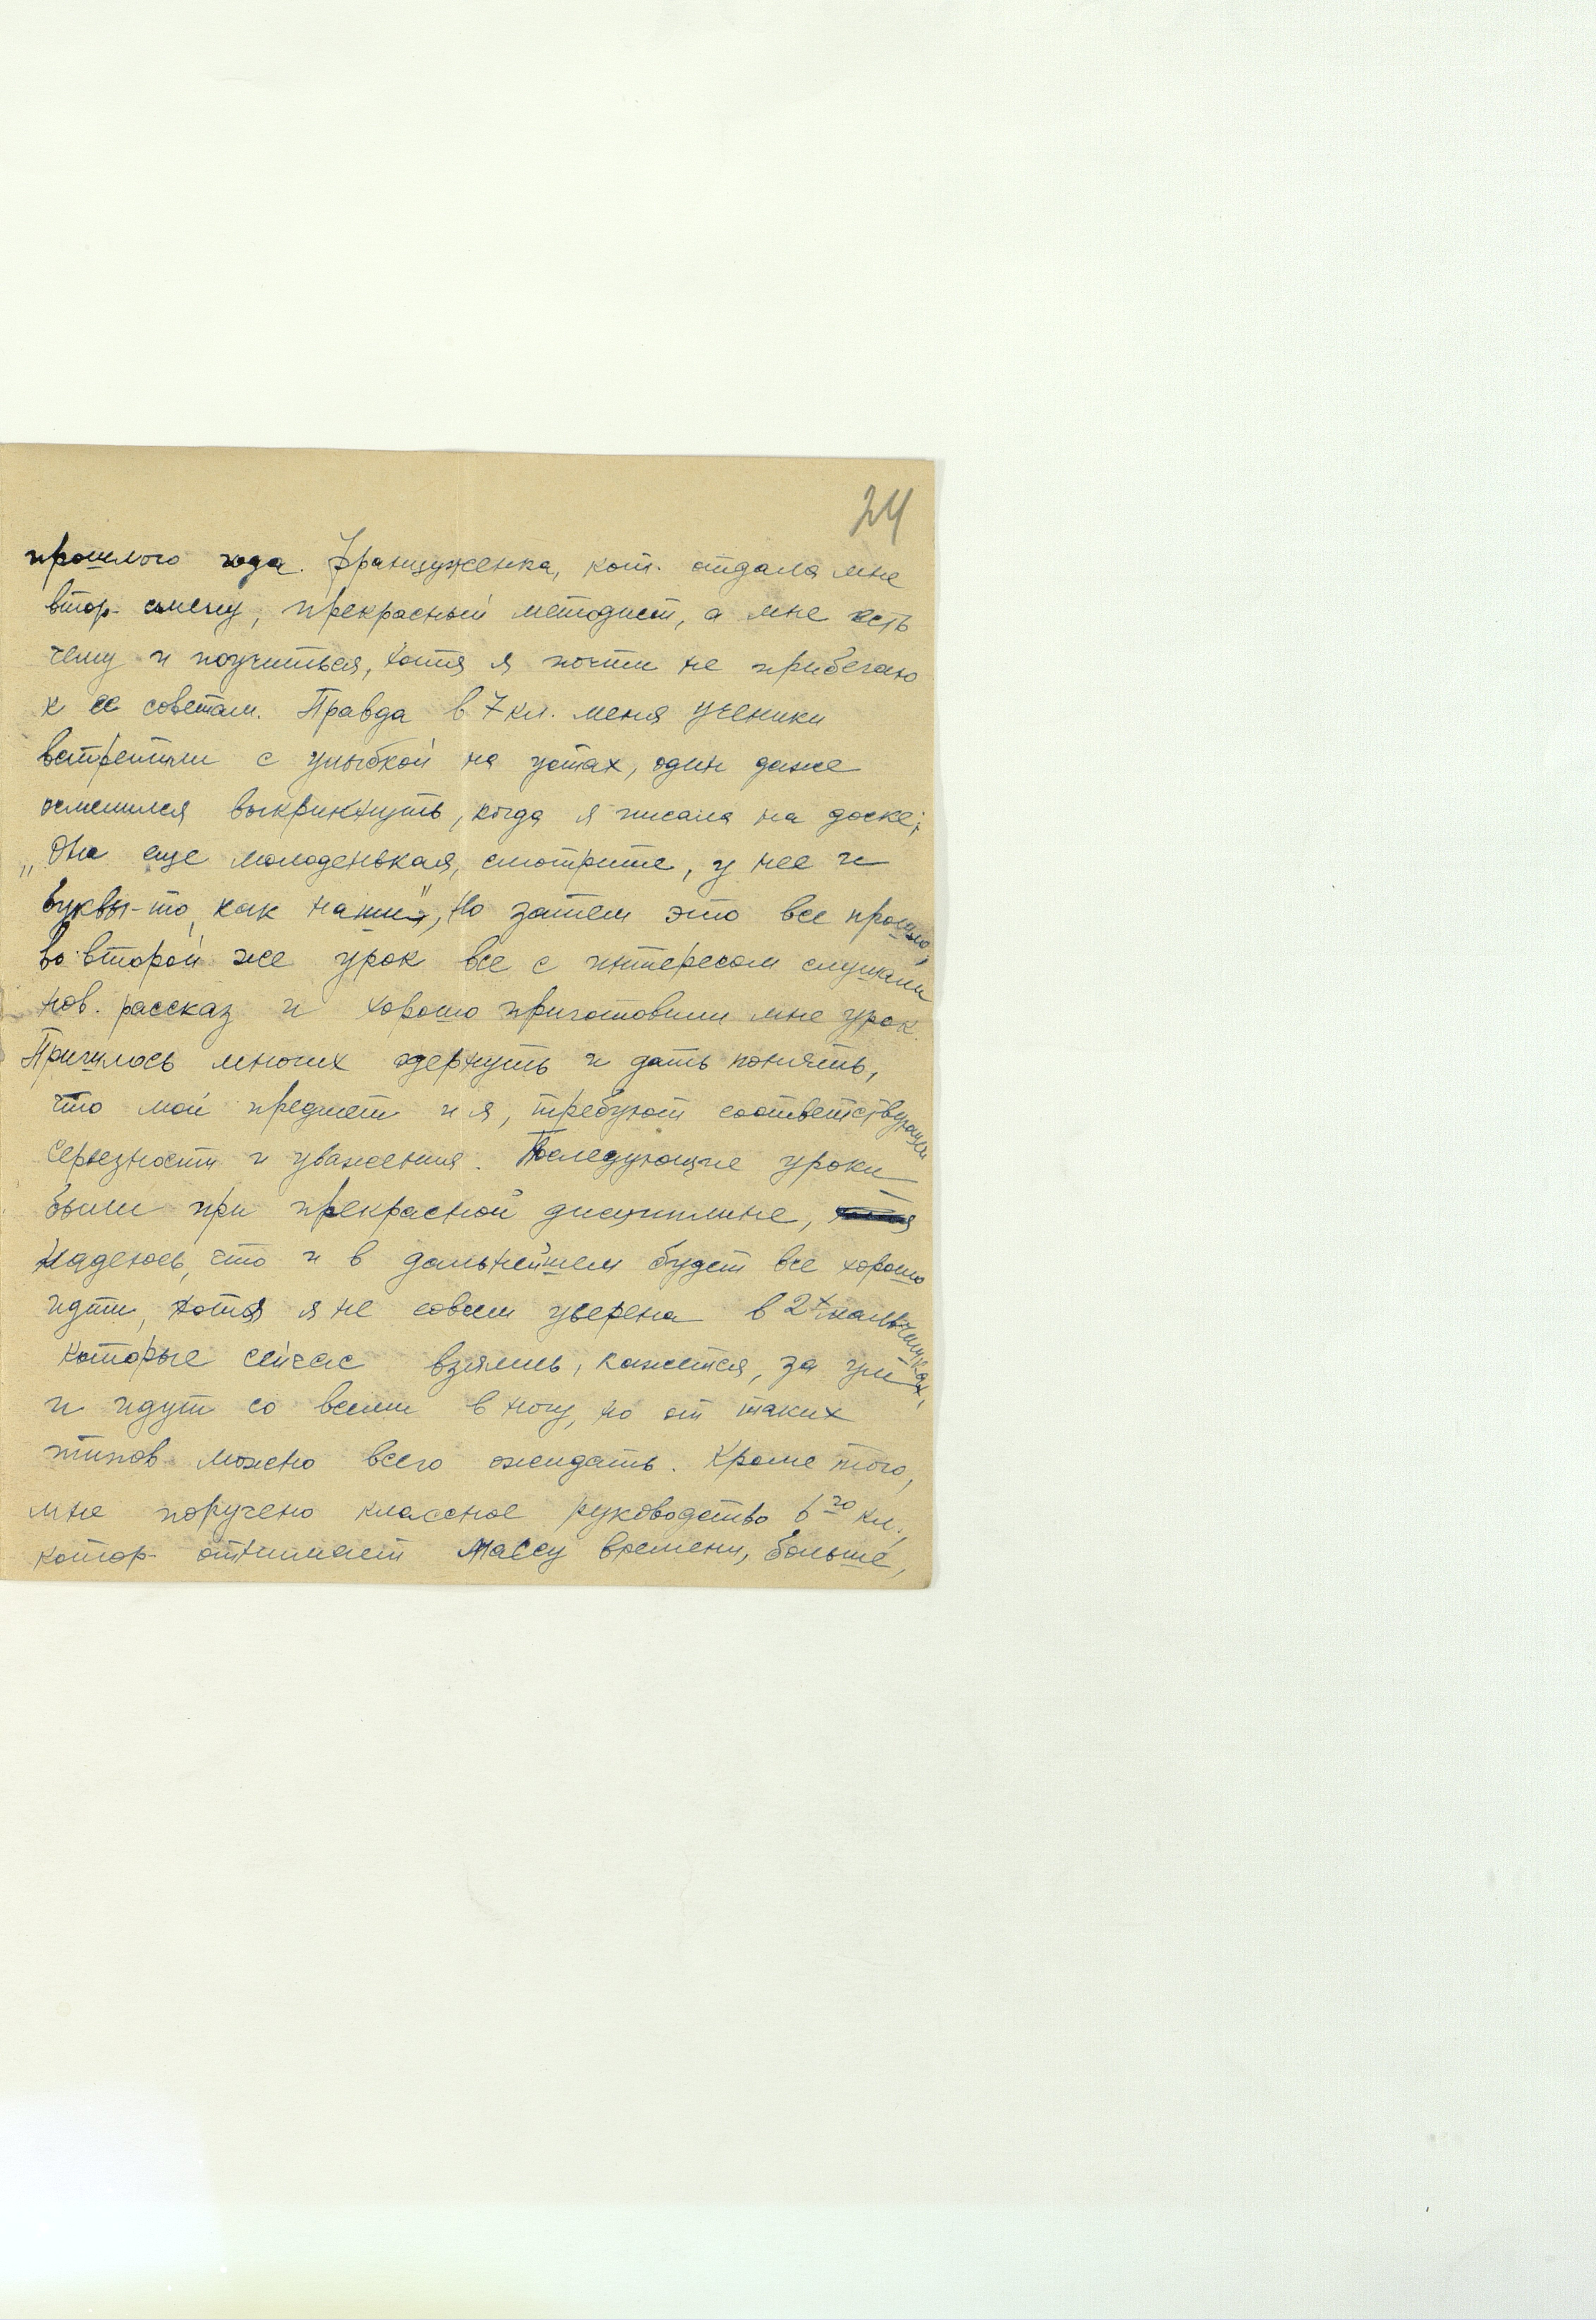 24
прошлого года. Француженка, кот. отдала мне
втор. смену, прекрасный методист, а мне есть
чему и поучиться, хотя я почти не прибегаю
к ее советам. Правда в 7 кл. меня ученики
встретили с улыбкой на устах, один даже
осмелился выкрикнуть, когда я писала на доске;
„Она еще молоденькая, смотрите, у нее и
буквы-то, как наши", но затем это все прошло,
во второй же урок все с интересом слушали
нов. рассказ и хорошо приготовили мне урок.
Пришлось многих одернуть и дать понять,
что мой предмет и я, требуют соответствующей
серьезности и уважения. Последующие уроки
были при прекрасной дисциплине,
надеюсь, что и в дальнейшем будет все хорошо
идти, хотя я не совсем уверена в 2х мальчишках,
которые сейчас взялись, кажется, за ум
и идут со всеми в ногу, но от таких
типов можно всего ожидать. Кроме того,
мне поручено классное руководство 6го кл.,
котор. отнимает массу времени, больше,